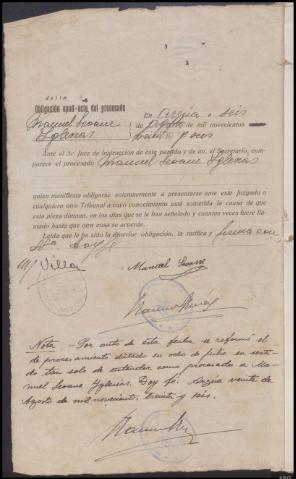 Obligación apud-acta del procesado
Manuel Seoane
Iglesias
En Arzúa a seis
de Agosto de mil novecientos
treinta y seis
Ante el Sr. Juez de Instrucción de este partido y de mí, el Secretario, com-
pareció el procesado Manuel Seoane Iglesias
quien manifiesta obligarse solemnemente a presentarse ante este Juzgado o
cualquiera otro Tribunal a cuyo conocimiento esté sometida la causa de que
esta pieza dimana, en los días que se le han señalado y cuantas veces fuere lla-
mado hasta que otra cosa se acuerde.
Leída que le ha sido la anterior obligación, la ratifica y firma con
S.Sª doy fe
Villar
Manuel Seoane
Nota - Por auto de esta fecha se reformó el
de procesamiento dictado en ocho de julio en senti-
do tan solo de entender como procesado a Ma-
nuel Seoane Iglesias. Doy fé. Arzúa veinte de
Agosto de mil novecientos treinta y seis.